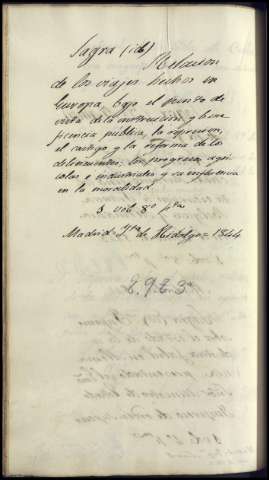 Sagra (id) Relacion
de los viajes hechos en
Europa, bajo el punto de
vista de la instruccion y bene
ficencia publica, la represion,
el castigo y la reforma de los
delincuentes, los progresos agri
colas e industriales y su influencia
en la moralidad.
vol 8º
Madrid de Hidalgo = 1844
8.923